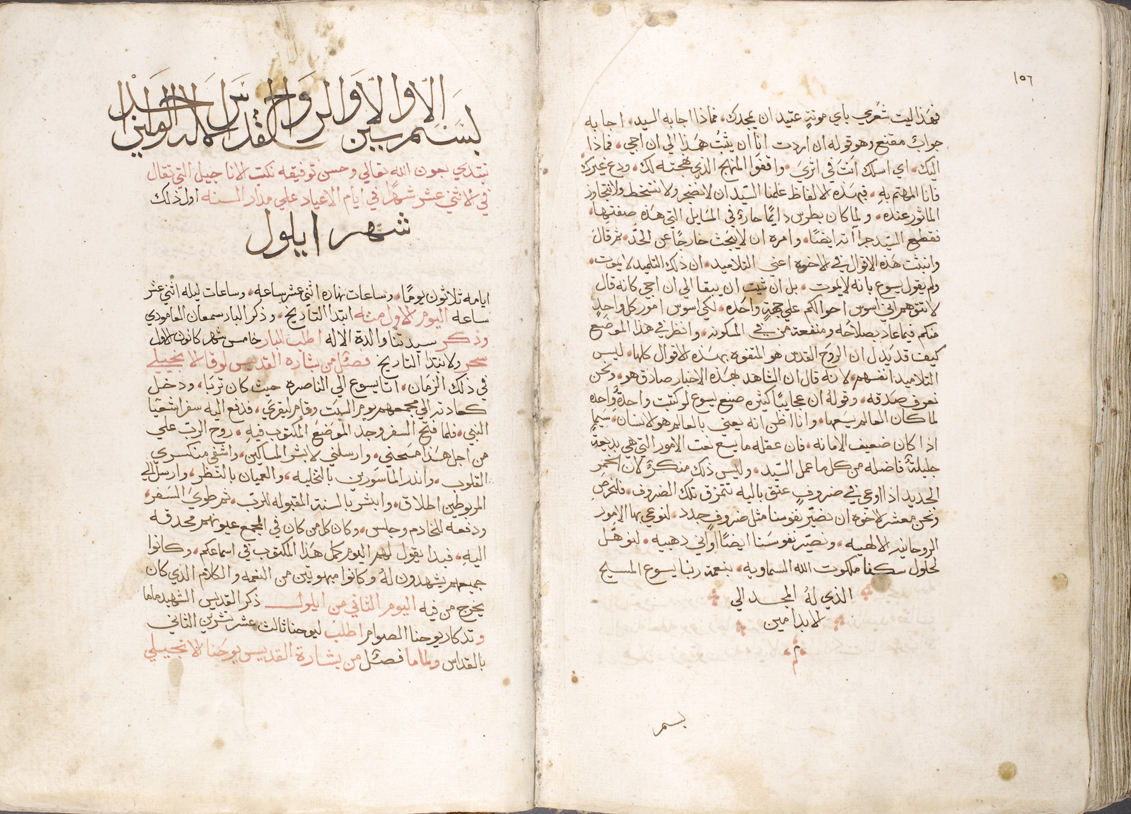 ١٥٦
فهذا ليت شعري باي موتةٍ عتيد ان يمجدك • فماذا اجابه السيد • اجابه
جواب مقنع وهو قوله ان اردت انا ان يثبت هذا الى ان اجي • فاذا
اليك • اي امسك انت في اثري • واقفوا المنهج الذي نهجته لك • ودع غيرك
فانا المهتم به • فبهذه الالفاظ علمنا السيد ان لا نضجر ولا نسخط ولا نتجاوز
الماثور عنده • ولما كان بطرس دايمًا حارة في المسايل التي هذه صفتها •
نقطع السيد حرارته ايضًا • وامره ان لا يبحث خارجًا عن الحد • ثم قال
وانبثت هذه الاقوال في الاخوة اعني التلاميذ • ان ذلك التلميذ لا يموت •
ولم يقول يسوع بانه لا يموت • بل ان شيت ان يبقا الى ان اجي كانه قال
لا تتوهم اني اسوس احوالكم علي جهةٍ واحدة • لكني اسوس امور كل واحدٍ
منكم فيما عاد بصلاحه ومنفعة من في المسكونه • وانظر في هذا الموضع
كيف قد يدل ان الروح القدس هو المتفوه بهذه الاقوال كلها • ليس
التلاميذ انفسهم • لانه قال ان الشاهد بهذه الاخبار صادق هو • ونحن
نعرف صدقه • وقوله ان عجايبًا كثيرة صنع يسوع لو كتبت واحدة واحدة
لما كان العالم يسعها • وانا اظن انه يعني بالعالم هو الانسان • سيما
اذا كان ضعيف الامانه • فان عقله ما يسع نعت الامور التي هي بديعة
جليلة فاضله من كل ما عمل السيد • وليس ذلك منكرٌ لان الخمر
الجديد اذا اوعي في ضروف عتق باليه تتمزق تلك الضروف • فلنحرص
ونحن معشر الاخوة ان نصير نفوسنا مثل ضروف جدد • لنوعي بها الامور
الروحانيه الالهيه • ونصير نفوسنا ايضًا واني ذهبيه • لنوهل
لحلول سكنا ملكوت الله السماويه • بنعمة ربنا يسوع المسيح
الذي له المجد الي
الابد امين
بسم
بسم الاب والابن والروح القدس الاله الواحد امين
نبتدي بعون الله تعالى وحسن توفيقه نكتب الاناجيل التي تقال
في الاثني عشر شهرًا في ايام الاعياد علي مدار السنه اول ذلك
شهر ايلول
ايامه ثلاثون يومًا • وساعات نهاره اثني عشر ساعه • وساعات ليله اثني عشر
ساعه اليوم الاول منه ابتدا التاريخ • وذكر البار سمعان العامودي
وذكر سيدتنا والدة الاله اطلب للبار خامس شهر كانون الاول
سحر ولابتدا التاريخ فصل من بشارة القديس لوقا الانجيلي
في ذلك الزمان • اتا يسوع الي الناصرة حيث كان تربا • ودخل
كعادته الي مجمعهم يوم السبت وقام ليقري • فدفع اليه سفر اشعيا
النبي • فلما فتح السفر وجد الموضع المكتوب فيه • روح الرب علي
من اجل هذا مسحني • وارسلني لابشر المساكين • واشفي منكسري
القلوب • وانذر الماسورين بالتخليه • والعميان بالنظر • وارسل الي
المربوطين اطلاق • وابشر بالسنة المقبوله للرب • ثم طوي السفر •
ودفعه للخادم وجلس • وكان كل من كان في المجمع عيونهم محدقه
اليه • فبدا يقول لهم اليوم كمل هذا المكتوب في اسماعكم • وكانوا
جميعهم يشهدون له وكانوا مبهوتين من النعمه والكلام الذي كان
يخرج من فيه اليوم الثاني من ايلول ذكر القديس الشهيد ماما
وتدكار يوحنا الصوام اطلب ليوحنا ثالث عشر تشرين الثاني
بالقداس ولماما فصل من بشارة القديس يوحنا الانجيلي